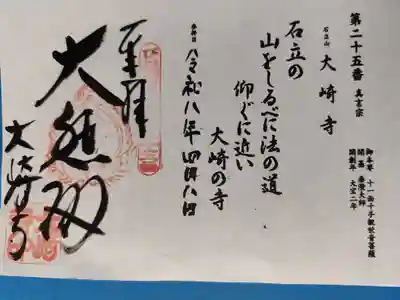 第二十五番 真言宗
石立山 大崎寺
御本尊 十一面千手観世音菩薩
開基 泰澄大師
開創年 大宝二年
石立の
山をしるべに法の道
仰ぐに近い
大崎の寺
参拝日 令和八年四月八日
奉拝
大悲殿
大崎寺